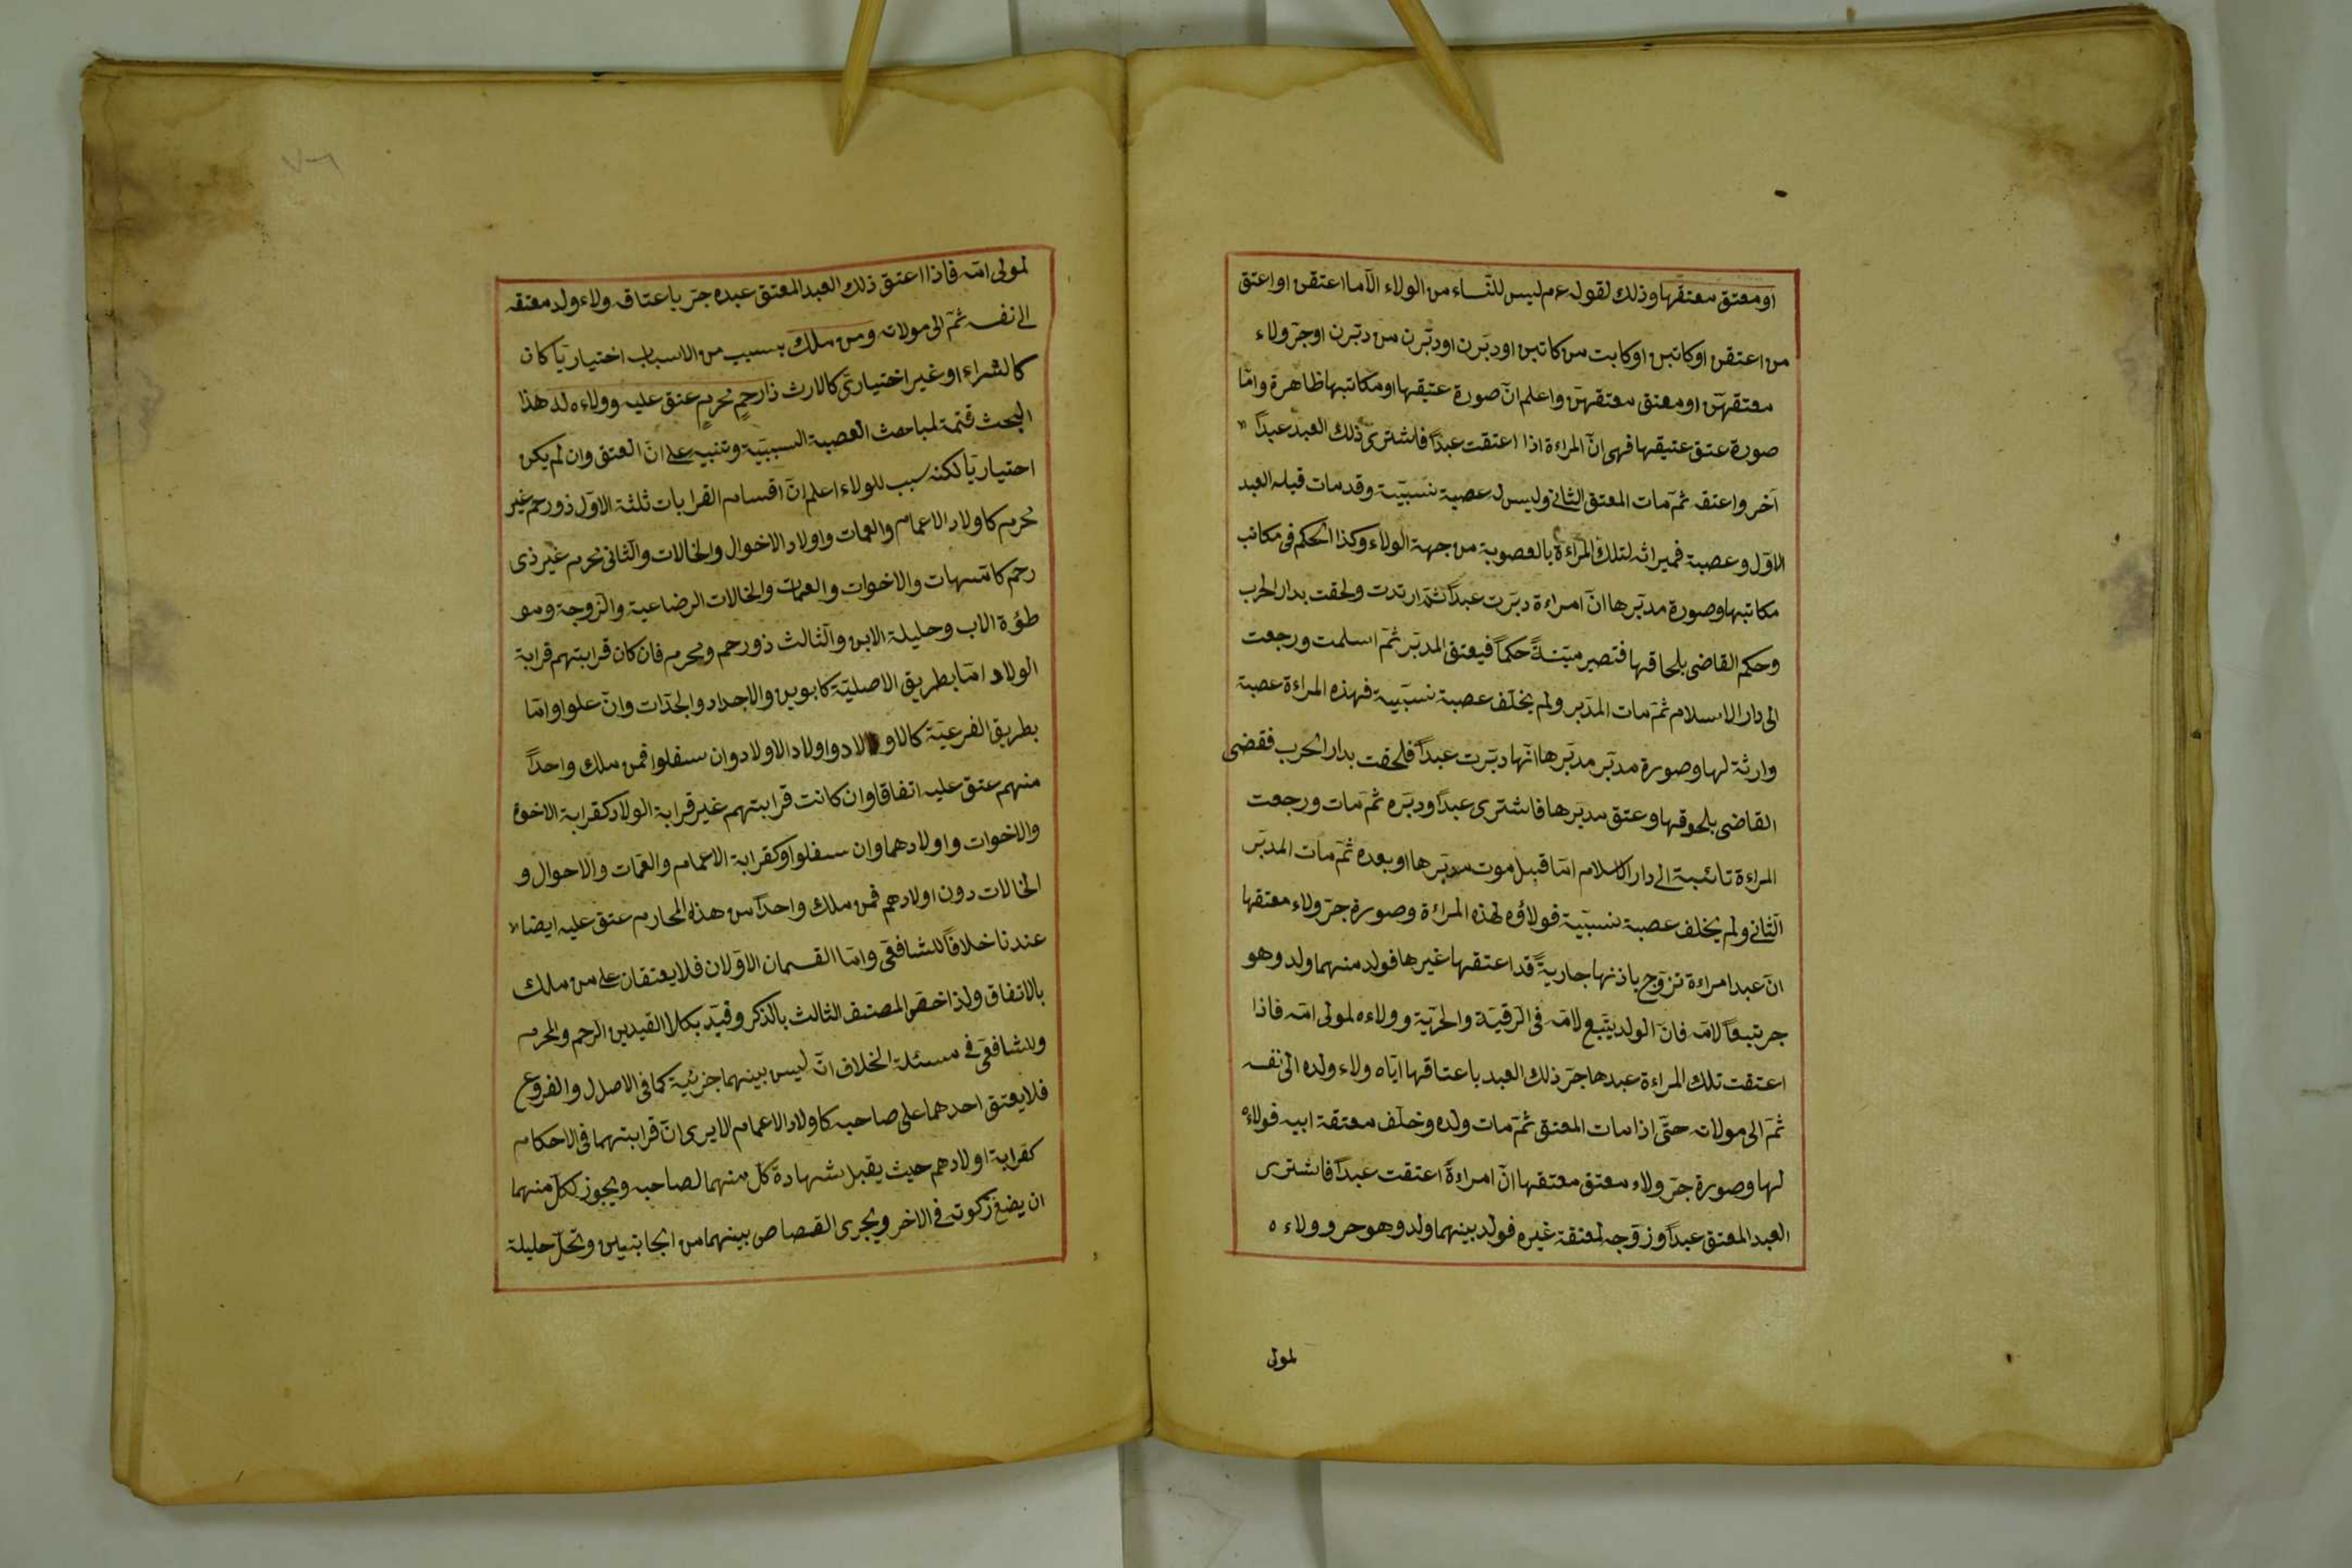 او معتق معتقها وذلك لقوله عم ليس للنساء من الولاء الا ما اعتقن او اعتق
من اعتقن او كاتبن او كاتبت من كاتبن او دبّرن او دبّرن من دبّرن او جرّ ولاء
معتقهنّ او معتق معتقهنّ واعلم انّ صورة عتيقها او مكاتبها ظاهرة وامّا
صورة عتق عتيقها فهى انّ المراءة اذا اعتقت عبداً فاشترى ذلك العبد عبداً
آخر واعتقه ثمّ مات المعتق الثانى وليس له عصبة نسبيّة وقد مات قبله العبد
الاوّل وعصبة فميراثه لتلك المراءة بالعصوبة من جهة الولاء وكذا الحكم فى مكاتب
مكاتبها وصورة مدبّرها انّ امراءة دبّرت عبداً ثمّ ارتدت ولحقت بدار الحرب
وحكم القاضى بلحاقها فتصير ميّتةً حكماً فيعتق المدبّر ثمّ اسلمت ورجعت
الى دار الاسلام ثمّ مات المدّبر ولم يخلّف عصبة نسبيّة فهذه المراءة عصبة
وارثة لها وصورة مدبّر مدبّرها انّها دبّرت عبداً فلحقت بدار الحرب فقضى
القاضى بلحوقها وعتق مدبّرها فاشترى عبداً ودبّره ثمّ مات ورجعت
المراءة تائبة الى دار الاسلام امّا قبل موت مدبّرها او بعده ثمّ مات المدبّر
الثّانى ولم يخلف عصبة نسبيّة فولاؤه لهذه المراءة وصورة جرّ ولاء معتقها
انّ عبد امراءة تزوّج باذنها جاريةً قد اعتقها غيرها فولد منهما ولد وهو
حر تبعاً لامّه فانّ الولد يتّبع لامّه فى الرّقيّة والحرّية وولاءه لمولى امّه فاذا
اعتقت تلك المراءة عبدها جرّ ذلك العبد باعتاقها ايّاه ولاء ولده الى نفسه
ثمّ الى مولاته حتّى اذا مات المعتق ثمّ مات ولده وخلّف معتقة ابيه فولاءه
لها وصورة جرّ ولاء معتق معتقها انّ امراءةً اعتقت عبداً فاشترى
العبد المعتق عبداً وزوّجه لمعتقة غيره فولد بينهما ولد وهو حر وولاءه
لمولى
لمولى امّه فاذا اعتق ذلك العبد المعتق عبده جرّ باعتاقه ولاء ولد معتقه
الى نفسه ثمّ الى مولاته ومن ملك بسبب من الاسباب اختياريّا كان
كالشراء او غير اختيارىّ كالارث ذا رحمٍ محرمٍ عتق عليه وولاءه له هذا
البحث تتمّة لمباحث العصبة السببيّة وتنبيه على انّ العتق وان لم يكن
اختياريّا لكنه سبب للولاء اعلم انّ اقسام القرابات ثلثة الاوّل ذو رحم غير
محرم كاولاد الاعمام والعمات واولاد الاخوال والخالات والثانى محرم غير ذى
رحم كامّهات والاخوات والعمات والخالات الرضاعية والزوجة ومو
طؤة الاب وحليلة الابن والثالث ذو رحم ومحرم فان كان قرابتهم قرابة
الولاد امّا بطريق الاصليّة كابوين والاجداد والجدّات وانّ علوا وامّا
بطريق الفرعيّة كالاولاد واولاد الاولاد وان سفلوا فمن ملك واحداً
منهم عتق عليه اتفاقا وان كانت قرابتهم غير قرابة الولاد كقرابة الاخوة
والاخوات واولادهما وان سفلوا وكقرابة الاعمام والعمّات والاخوال و
الخالات دون اولادهم فمن ملك واحداً من هذه المحارم عتق عليه ايضا
عندنا خلافاً للشافعى وامّا القسمان الاوّلان فلا يعتقان على من ملك
بالاتفاق ولذا خصّ المصنف الثالث بالذكر وقيّد بكلا القيدين الرحم والمحرم
وللشافعى فى مسئلة الخلاف انّه ليس بينهما جزئية كما فى الاصل والفروع
فلا يعتق احدهما على صاحبه كاولاد الاعمام الا يرى انّ قرابتهما فى الاحكام
كقرابة اولادهم حيث يقبل شهادة كلّ منهما لصاحبه ويجوز لكلّ منهما
ان يضع زكوته فى الاخر ويجرى القصاص بينهما من الجانبين وتحلّ حليلة